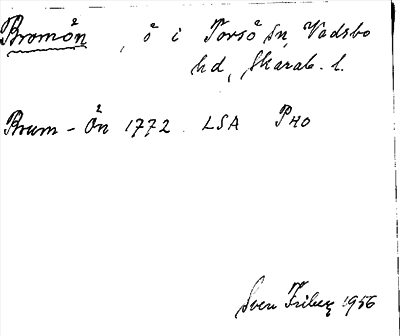 Bromön, ö i Torsö sn, Vadsbo
hd, Skarab. l.
Brum-Ön 1772. LSA PHO
Sven Friberg 1956